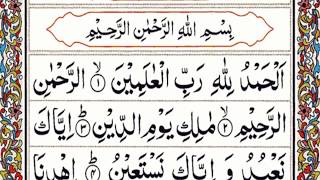 بِسْمِ اللهِ الرَّحْمٰنِ الرَّحِيْمِ
اَلْحَمْدُ لِلّٰهِ رَبِّ الْعٰلَمِيْنَ ۙ﴿۱﴾ الرَّحْمٰنِ
الرَّحِيْمِ ۙ﴿۲﴾ مٰلِكِ يَوْمِ الدِّيْنِ ؕ﴿۳﴾ اِيَّاكَ
نَعْبُدُ وَ اِيَّاكَ نَسْتَعِيْنُ ؕ﴿۴﴾ اِهْدِنَا